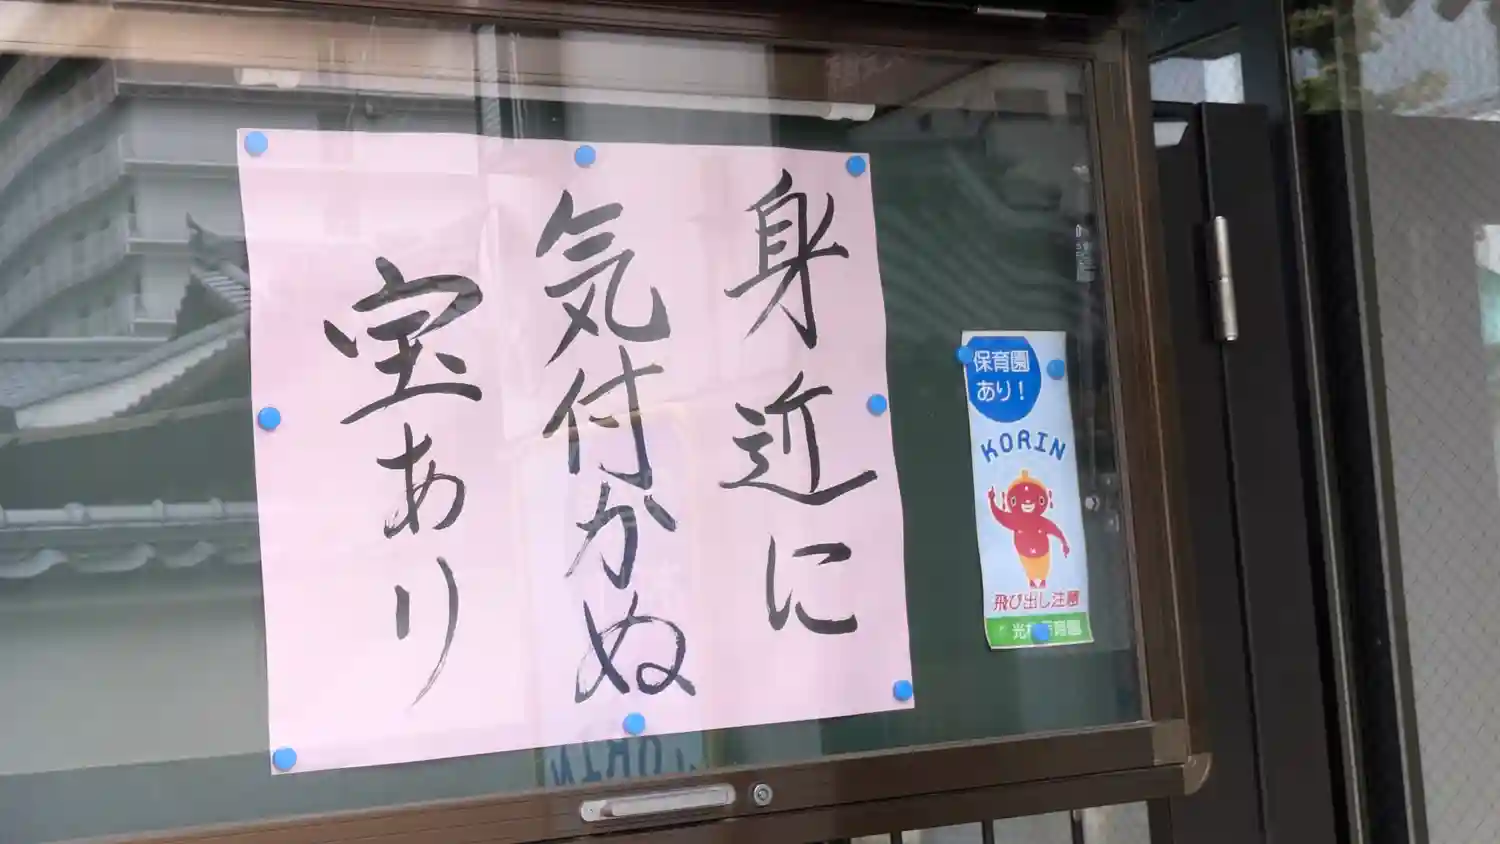 身近に
気付かぬ
宝あり
保育園
あり!
KORIN
飛び出し注意